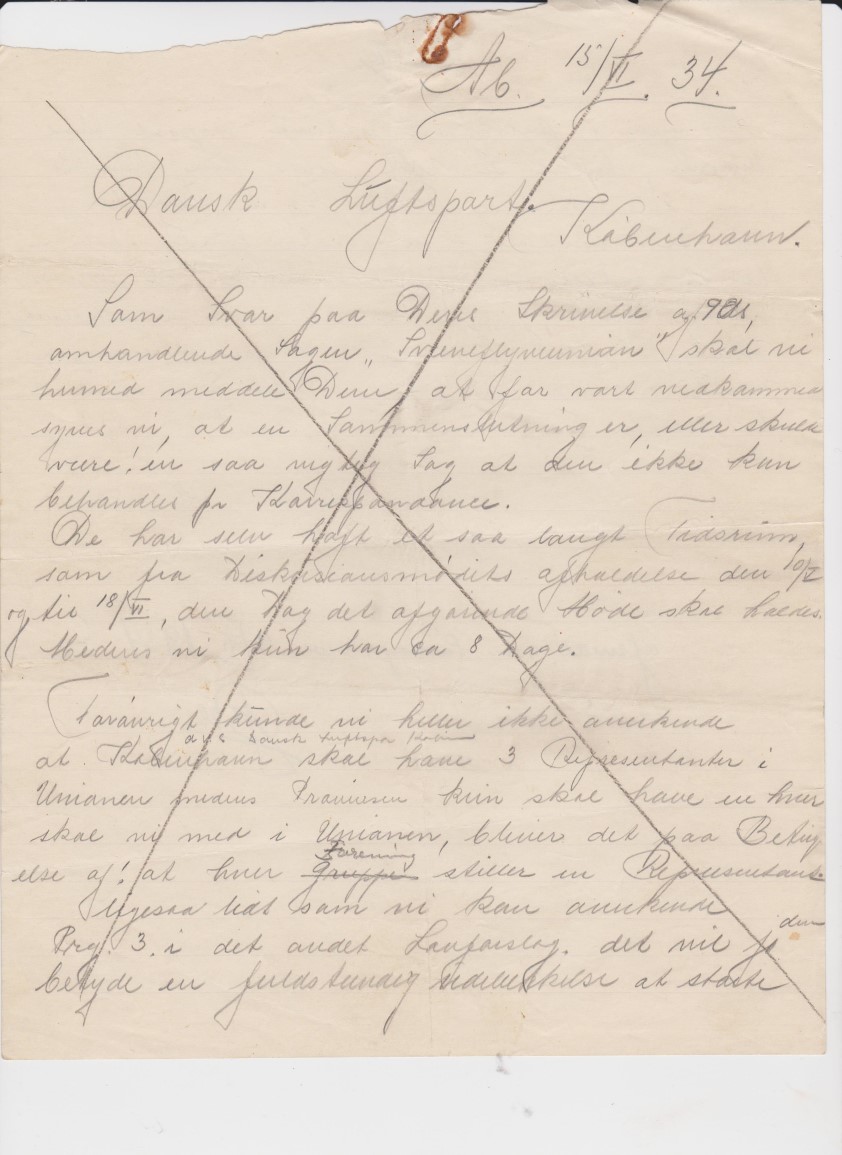 Ab. 15/VI. 34.
Dansk Luftsport.
København.
Som Svar paa Deres Skrivelse af 9ds,
omhandlende Sagen „Svæveflyveunion" skal vi
hermed meddele Dem, at for vort vedkommed
synes vi, at en Sammenslutning er, eller skulde
være! en saa vigtig Sag at den ikke kan
behandles pr Korrespondance.
De har selv haft et saa langt Tidsrum,
som fra Diskusionsmødets afholdelse den 10/V
og til 18/VI, den Dag det afgørende Møde skal holdes.
Medens vi kun har ca 8 Dage.
Forøvrigt kunde vi heller ikke anerkende
d.v.s Dansk Luftspor
at København skal have 3 Representanter i
Unionen medens Provinsen kun skal have en hver
skal vi med i Unionen, bliver det paa Beting
else af! at hver Gruppe stiller en Representant
Forening
ligesaa lidt som vi kan anerkende
Prg. 3. i det andet Lovforslag. det vil jo
den
betyde en fuldstændig udelukkelse at støtte